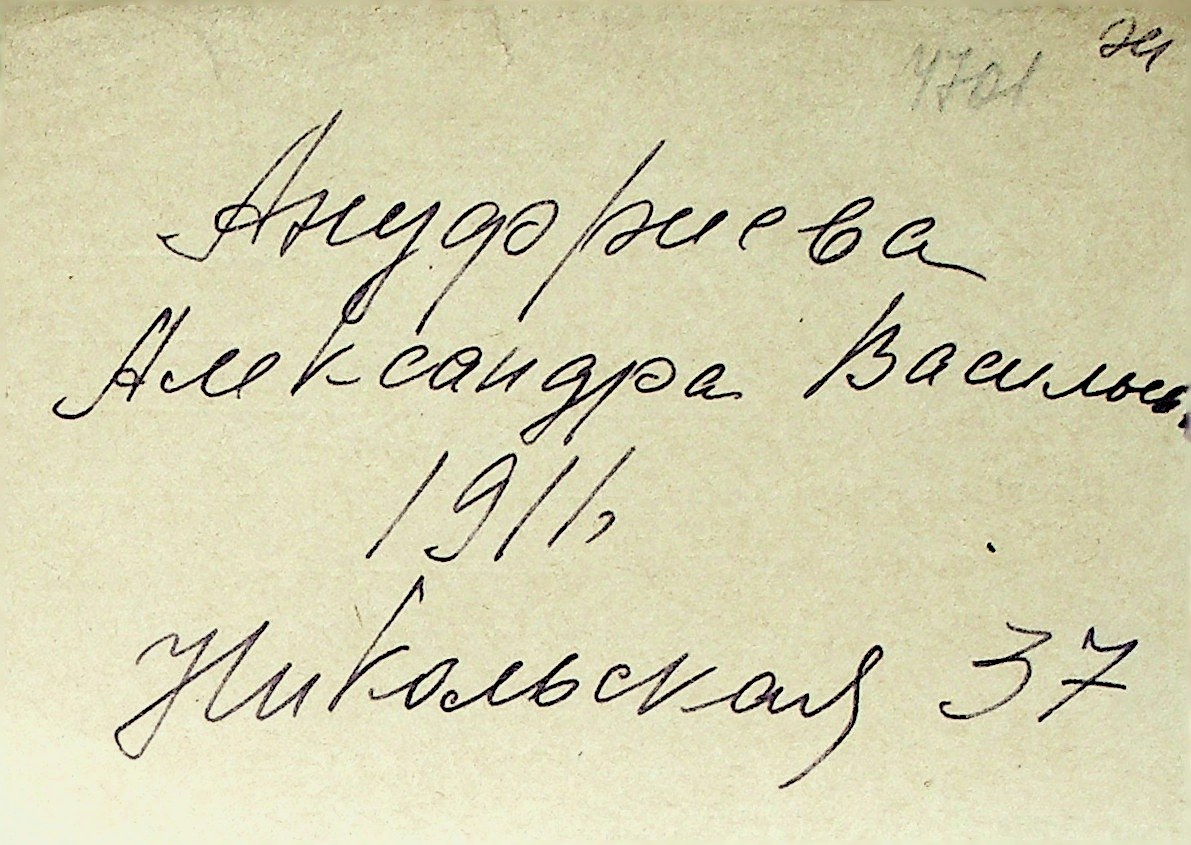 4701
Ануфриева
Александра Василье
1911,
Никольская 37